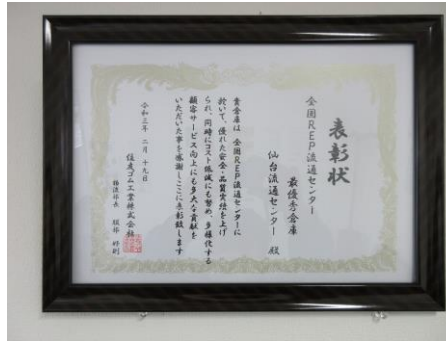 表彰状
全国REP流通センター
最優秀倉庫
仙台流通センター 殿
貴倉庫は 全国REP流通センターに
於いて、優れた安全・品質実績を上げ
られ、同時にコスト低減にも努め、多様化する
顧客サービス向上にも多大な貢献を
いただいた事を感謝しここに表彰致します
令和三年 二月 十九日
住友ゴム工業株式会社
物流部長 服部